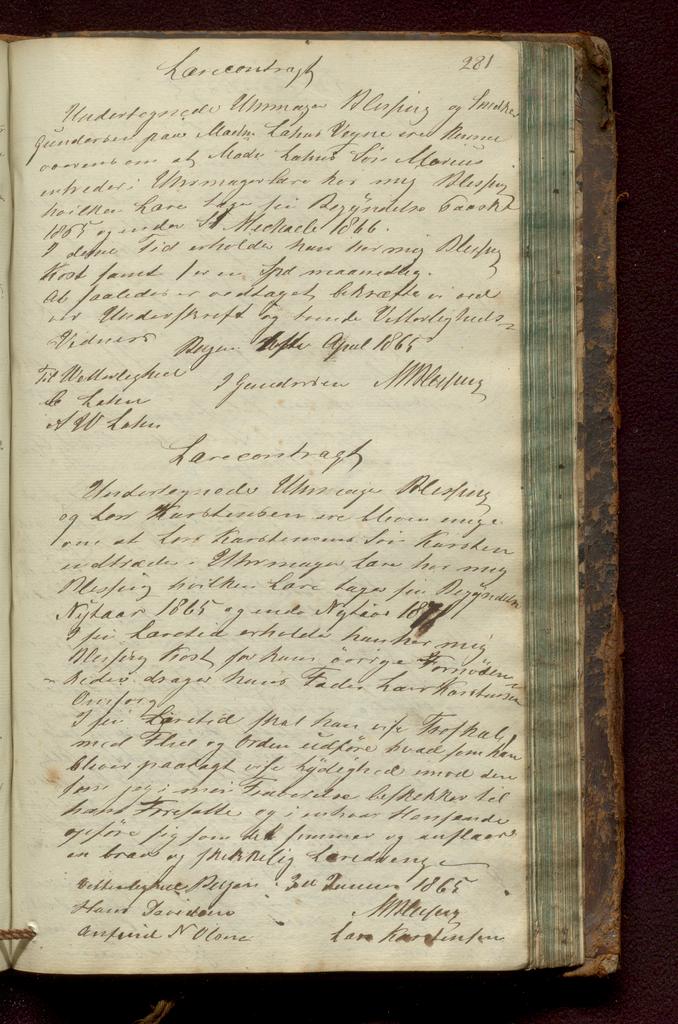 281
Lærecontragt
Undertegnede Uhrmager Blessing og Snedker
Gundersen paa Madm Lahns Vegne ere kumne
overens om at Mads Lahns Søn Marius
indtreder i Uhrmagerlære hos mig Blessing
hvilken Lære tager sin Begyndelse Paaske
1865 og ender St Mechaeli 1866.
I denne Tid erholder han hos mig Blessing
Kost samt 1 en Spd maanedlig.
At saaledes er vedtaget bekræfte vi ved
vor Underskrift og tvende Vitterligheds-
Vidner
Bergen April 1865
Til Vitterlighed
J Gundersen MBlessing
C Lahn
A W Lahn
Lærecontragt
Undertegnede Uhrmager Blessing
og Lars Karstensen ere bleven enige
om at Lars Karstensens Søn Karsten
indtræder i Uhrmager Lære hos mig
Blessing hvilken Lære tager sin Begyndelse
Nytaar 1865 og ender Nytaar 1871
I sin Læretid erholder han hos mig
Blessing Kost for hans øvrige Fornøden-
heder drager hans Fader Lars Karstensen
Omsorg
I sin Læretid skal han vise Troskab,
med Flid og Orden udføre hvad som han
bliver paalagt vise Lydighed imod den
som jeg i min Fraværelse beskikker til
hans Foresatte og i enhver Henseende
opføre sig som det sømmer og anstaaer
en brav og skikkelig Læredreng
Vitterlighed Bergen 3de Januar 1865
Hans Davidsen MBlessing
Anfind N Olsne Lars Karstensen